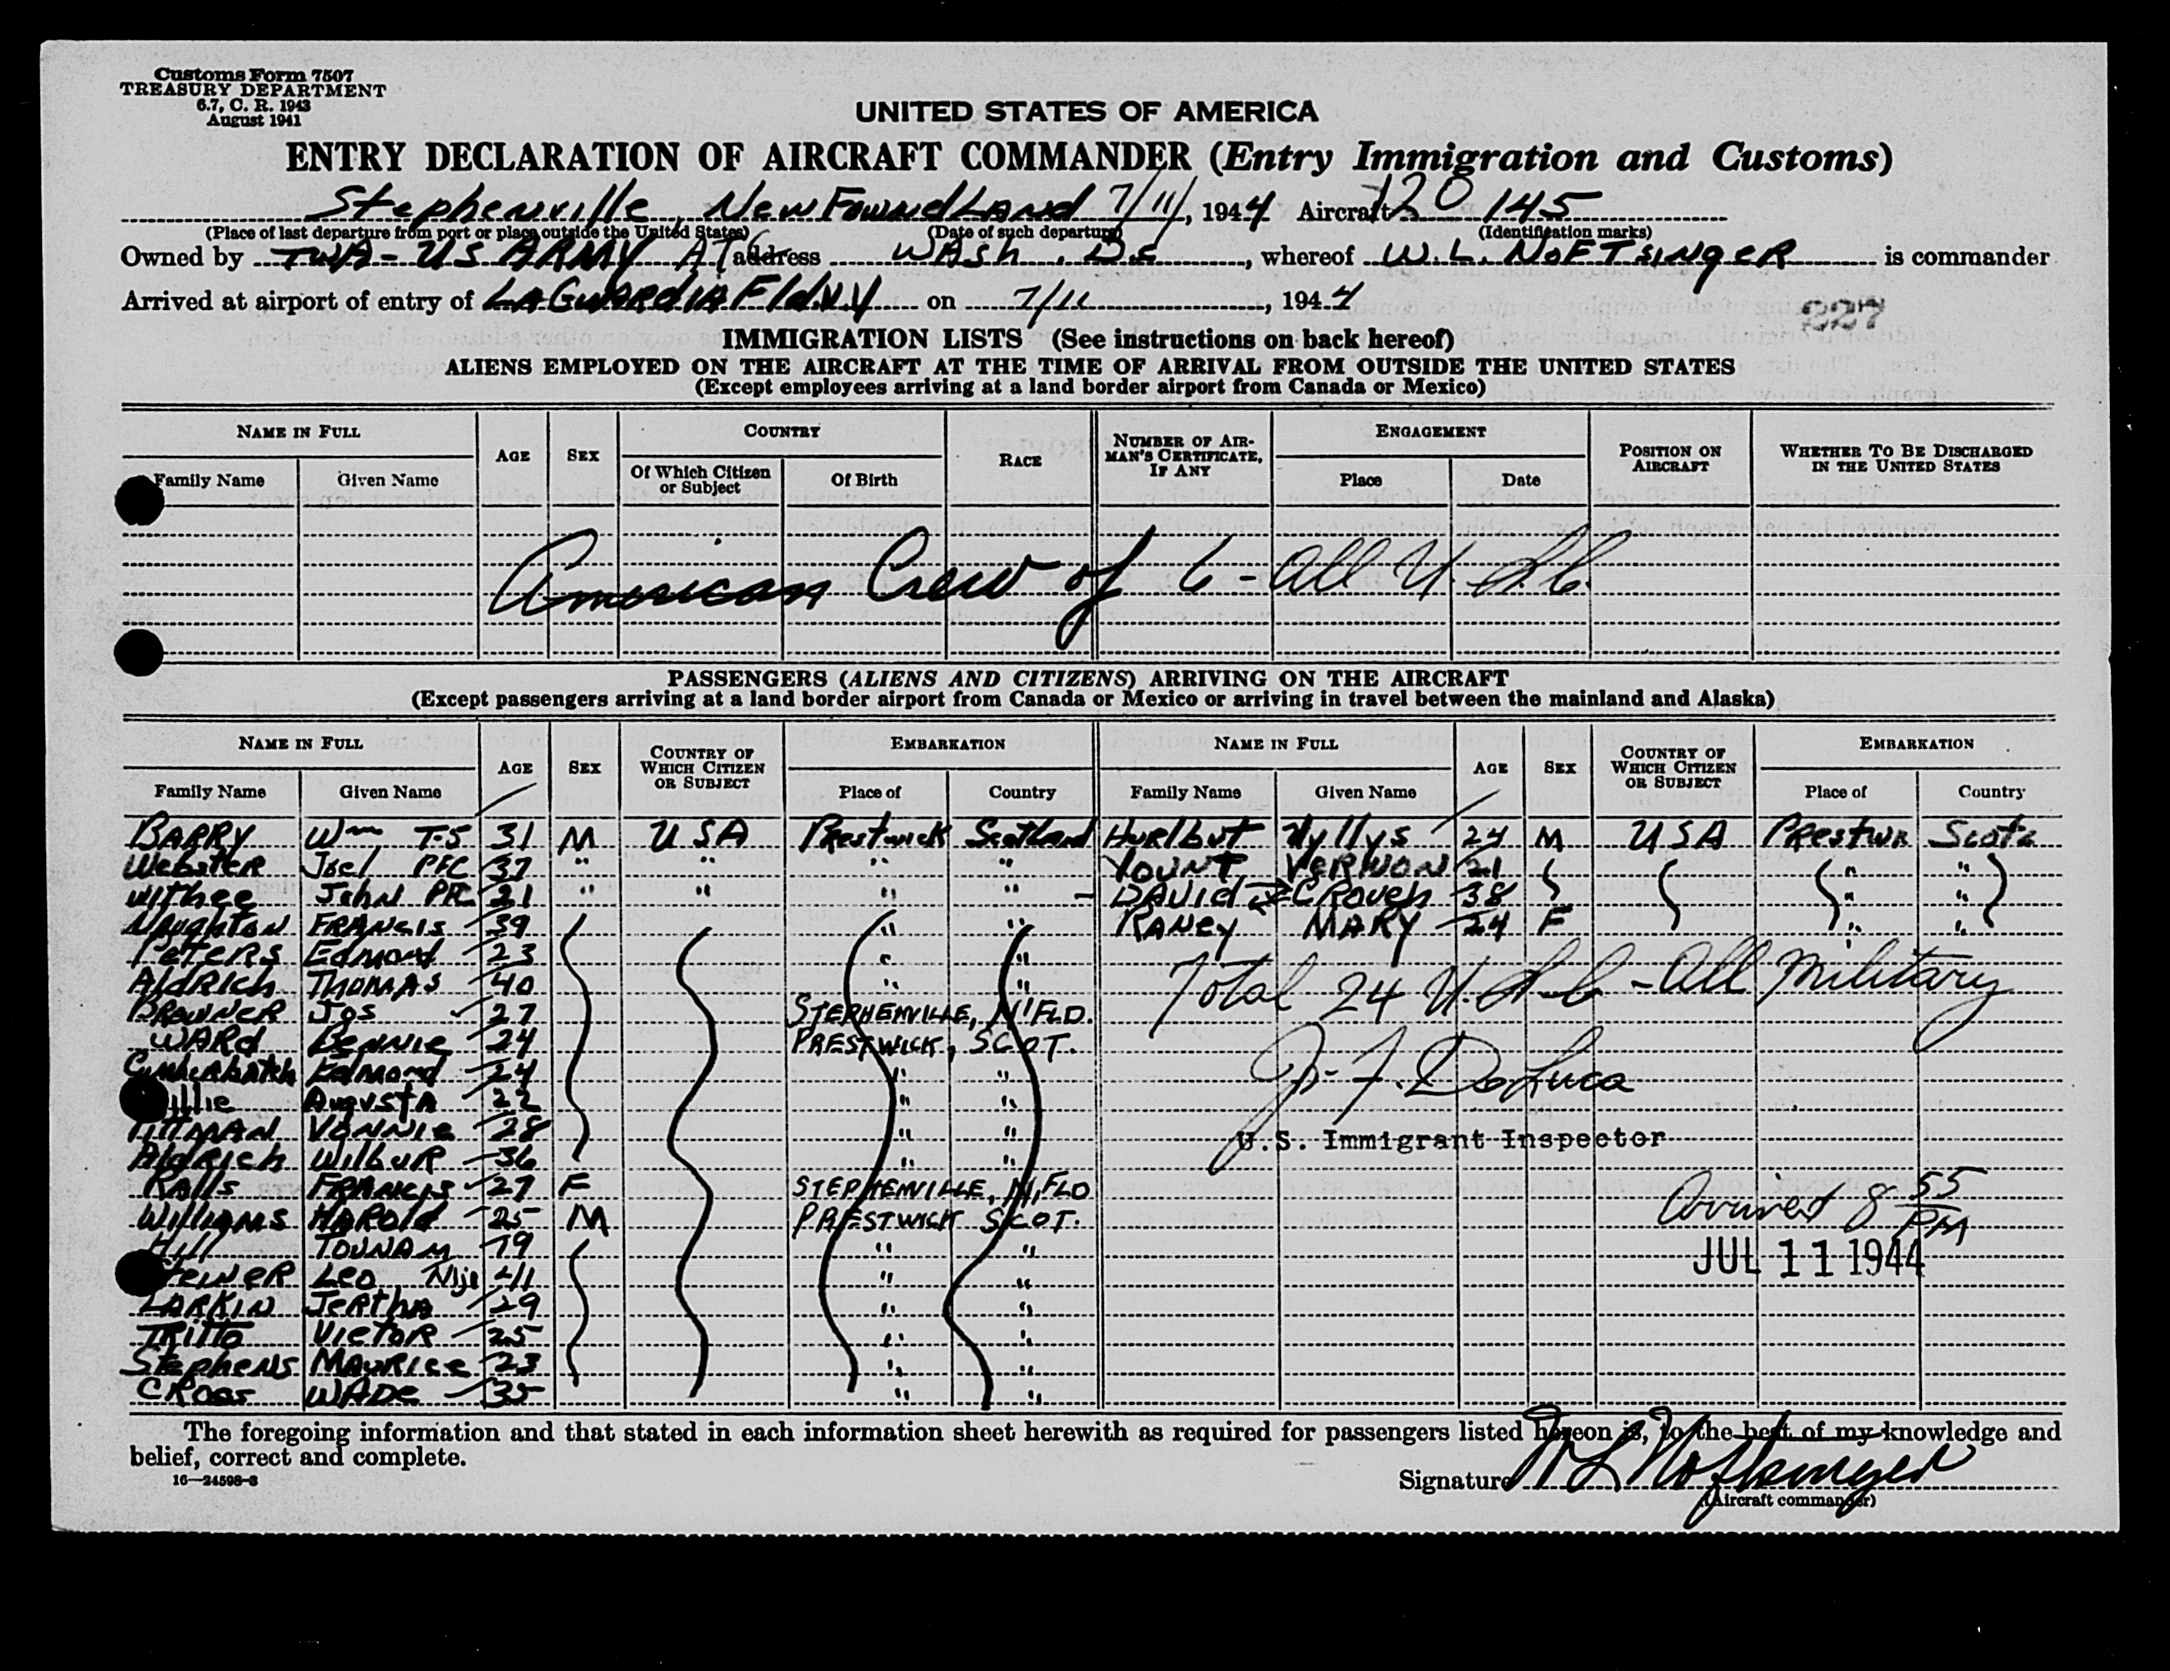 Customs Form 7507
TREASURY DEPARTMENT
6.7, C. R. 1943
August 1941
UNITED STATES OF AMERICA
ENTRY DECLARATION OF AIRCRAFT COMMANDER (Entry Immigration and Customs)
Stephenville, NewFoundLand 7/11, 1944 Aircraft 120145
(Place of last departure from port or place outside the United States) (Date of such departure) (Identification marks)
Owned by TWA-US ARMY AT address WASh. DC, whereof W.L. NOFTSINGER is commander
Arrived at airport of entry of LAGUARDIA Fld. NY on 7/11, 1944
227
IMMIGRATION LISTS (See instructions on back hereof)
ALIENS EMPLOYED ON THE AIRCRAFT AT THE TIME OF ARRIVAL FROM OUTSIDE THE UNITED STATES
(Except employees arriving at a land border airport from Canada or Mexico)
NAME IN FULL AGE SEX COUNTRY RACE NUMBER OF AIRMAN'S CERTIFICATE, IF ANY ENGAGEMENT POSITION ON AIRCRAFT WHETHER TO BE DISCHARGED IN THE UNITED STATES
Family Name Given Name Of Which Citizen or Subject Of Birth Place Date
American Crew of 6 - All U.S.C.
PASSENGERS (ALIENS AND CITIZENS) ARRIVING ON THE AIRCRAFT
(Except passengers arriving at a land border airport from Canada or Mexico or arriving in travel between the mainland and Alaska)
NAME IN FULL AGE SEX COUNTRY OF WHICH CITIZEN OR SUBJECT EMBARKATION NAME IN FULL AGE SEX COUNTRY OF WHICH CITIZEN OR SUBJECT EMBARKATION
Family Name Given Name Place of Country Family Name Given Name Place of Country
BARRY Wm T-5 31 M USA Prestwick Scotland Hurlbut Hyllys 24 M USA Prestwk Scotl
Webster Joel PFC 37 " " " " YOUNT VERNON 21 " "
Withee John PFC 21 " " " " DAVID CROUCH 38 " "
Naughton FRANCIS 39 " " RANEY MARY 24 F " "
Peters Edmond 23 " "
Aldrich THOMAS 40 " " Total 24 U.S.C - All Military
BROWNER Jos 27 STEPHENVILLE, N'FLD.
WARD Bennie 24 PRESTWICK, SCOT.
Cumberbatch Edmond 24 " " J. F. DeLuca
illie AugustA 22 " "
TITTMAN VONNIE 28 " " U.S. Immigrant Inspector
Aldrich Wilbur 36 " "
Ralls FRANCIS 27 F STEPHENVILLE, N'FLD Arrived 8 55 PM
WILLIAMS HAROLD 25 M PRESTWICK SCOT.
Hill 19 " " JUL 11 1944
Leo 41 " "
LARKIN JerthA 29 " "
TRITTO VICTOR 25 " "
Stephens MAURICE 23 " "
CROSS WADE 35 " "
The foregoing information and that stated in each information sheet herewith as required for passengers listed hereon is, to the best of my knowledge and
belief, correct and complete.
16—24598-3
Signature W L Noftsinger
(Aircraft commander)